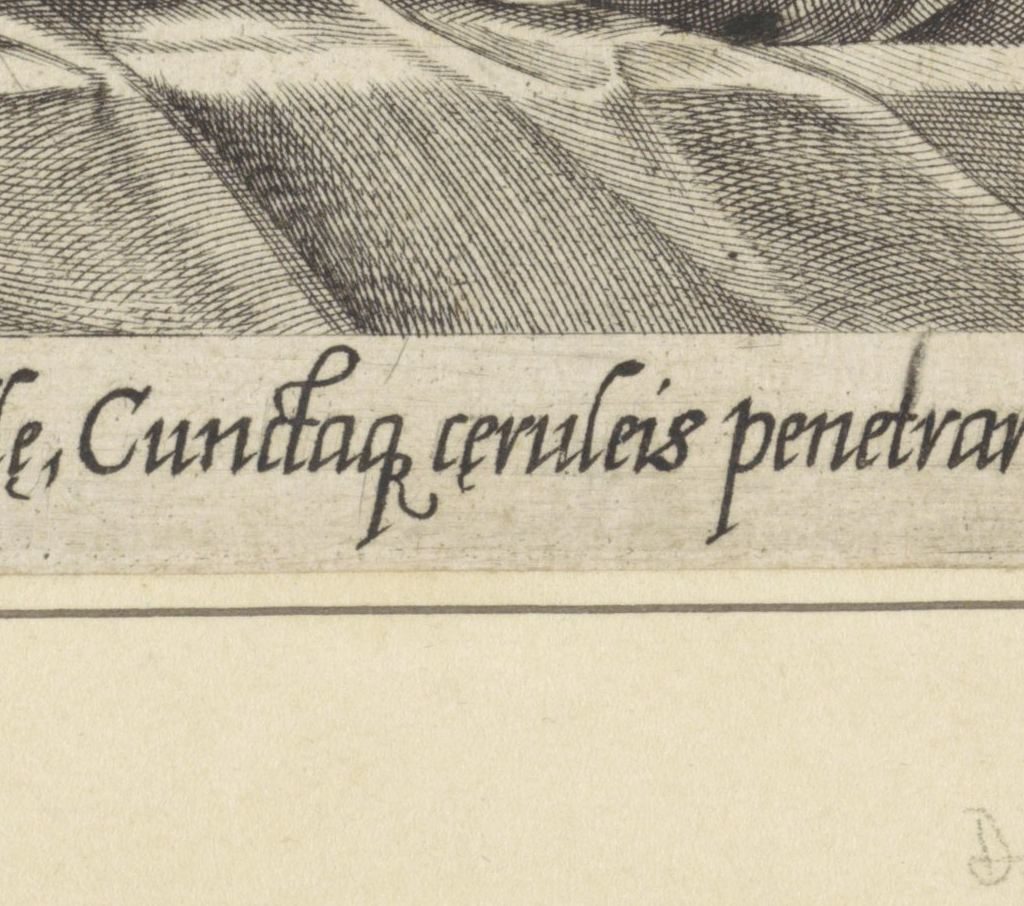 lę, Cunctaqꝫ cęruleis penetrar